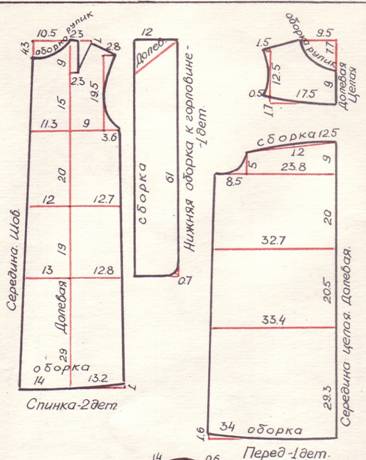 10.5
2.3
1
2.8
4.3
оборка рупик
9
2.3
19.5
15
11.3
9
3.6
20
12
12.7
19
13
12.8
Долевая
29
оборка
14
13.2
1
Середина. Шов
Спинка-2дет
12
Долев.
сборка
61
0.7
Нижняя оборка к горловине-
-1дет.
9.5
7.7
оборка рупик
1.5
12.5
9
0.5
17.5
1.7
Долевая
Целая
сборка
12.5
12
5
8.5
23.8
9
20
32.7
20.5
33.4
29.3
34
оборка
1.6
Середина целая. Долевая.
Перед-1дет.
14
0.6